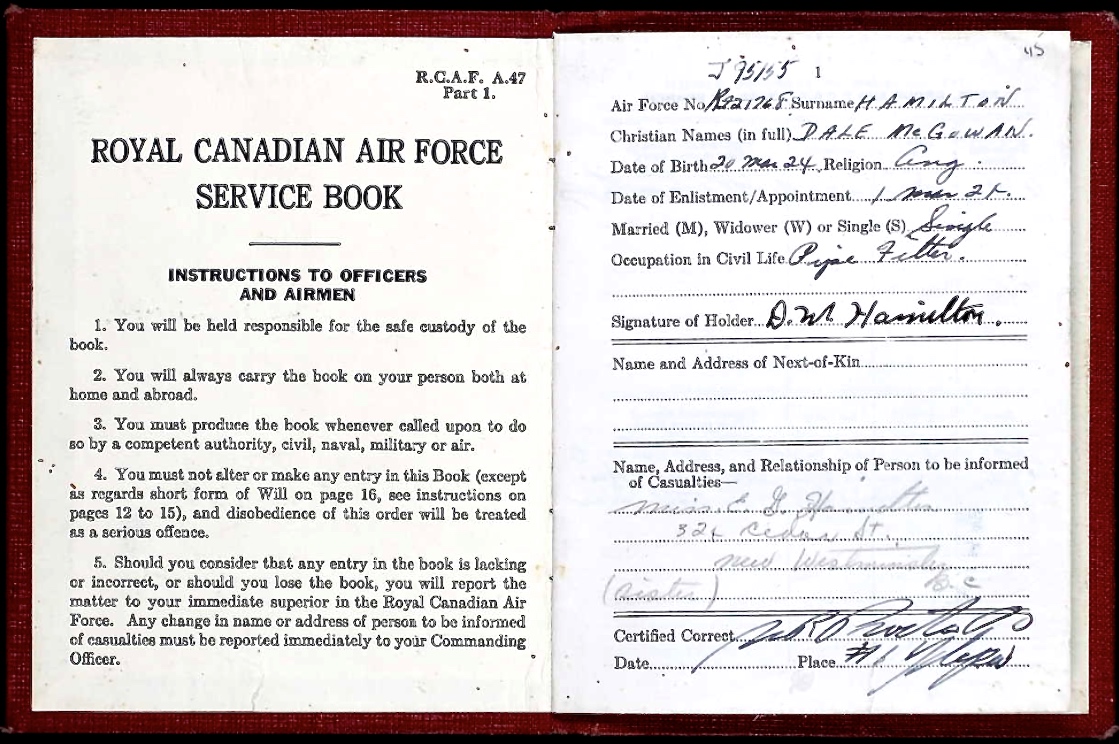 R.C.A.F. A.47
Part 1.
ROYAL CANADIAN AIR FORCE
SERVICE BOOK
INSTRUCTIONS TO OFFICERS
AND AIRMEN
1. You will be held responsible for the safe custody of the
book.
2. You will always carry the book on your person both at
home and abroad.
3. You must produce the book whenever called upon to do
so by a competent authority, civil, naval, military or air.
4. You must not alter or make any entry in this Book (except
as regards short form of Will on page 16, see instructions on
pages 12 to 15), and disobedience of this order will be treated
as a serious offence.
5. Should you consider that any entry in the book is lacking
or incorrect, or should you lose the book, you will report the
matter to your immediate superior in the Royal Canadian Air
Force. Any change in name or address of person to be informed
of casualties must be reported immediately to your Commanding
Officer.
45
J 95155 1
Air Force No. Surname HAMILTON
Christian Names (in full) DALE McGOWAN.
Date of Birth 20 Mar 24. Religion Ang.
Date of Enlistment/Appointment 1
Married (M), Widower (W) or Single (S) Single
Occupation in Civil Life Pipe Fitter.
Signature of Holder D. M. Hamilton.
Name and Address of Next-of-Kin
Name, Address, and Relationship of Person to be informed
of Casualties—
Miss E. G. Hamilton
Cedar St.,
New Westminster
(sister) B.C
Certified Correct
Date Place